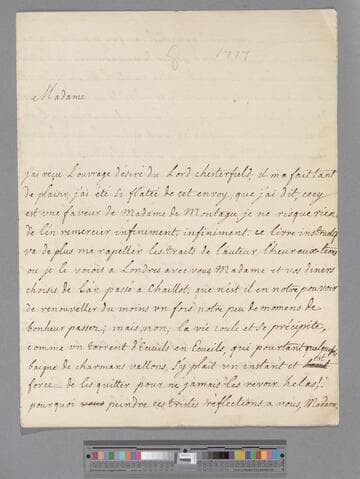 1777
Madame
j'ai reçu L'ouvrage désiré du Lord chesterfield; il m'a fait tant
de plaisir, j'ai été si flatée de cet envoy, que j'ai dit, cecy
est une faveur de Madame de Montagu, je ne risque rien
de L'en remercier infiniment, infiniment. ce livre instructif
va de plus me rapeller les traits de L'auteur, L'heureux tems
ou je le voiois a Londres avec vous Madame et vos diners
choisis de L'an passé a Chaillot, que n'est il en notre pouvoir
de renouveller du moins un fois notre peu de momens de
bonheur passez; mais, non, la vie coule et se précipite,
comme un torrent d'Ecueils en Ecueils, qui pourtant quelquefois
baigne de charmans vallons, s'y plait un instant et est
force de les quitter pour ne jamais les revoir. helas!
pourquoi vous peindre ces tristes réflections a vous, Madame,